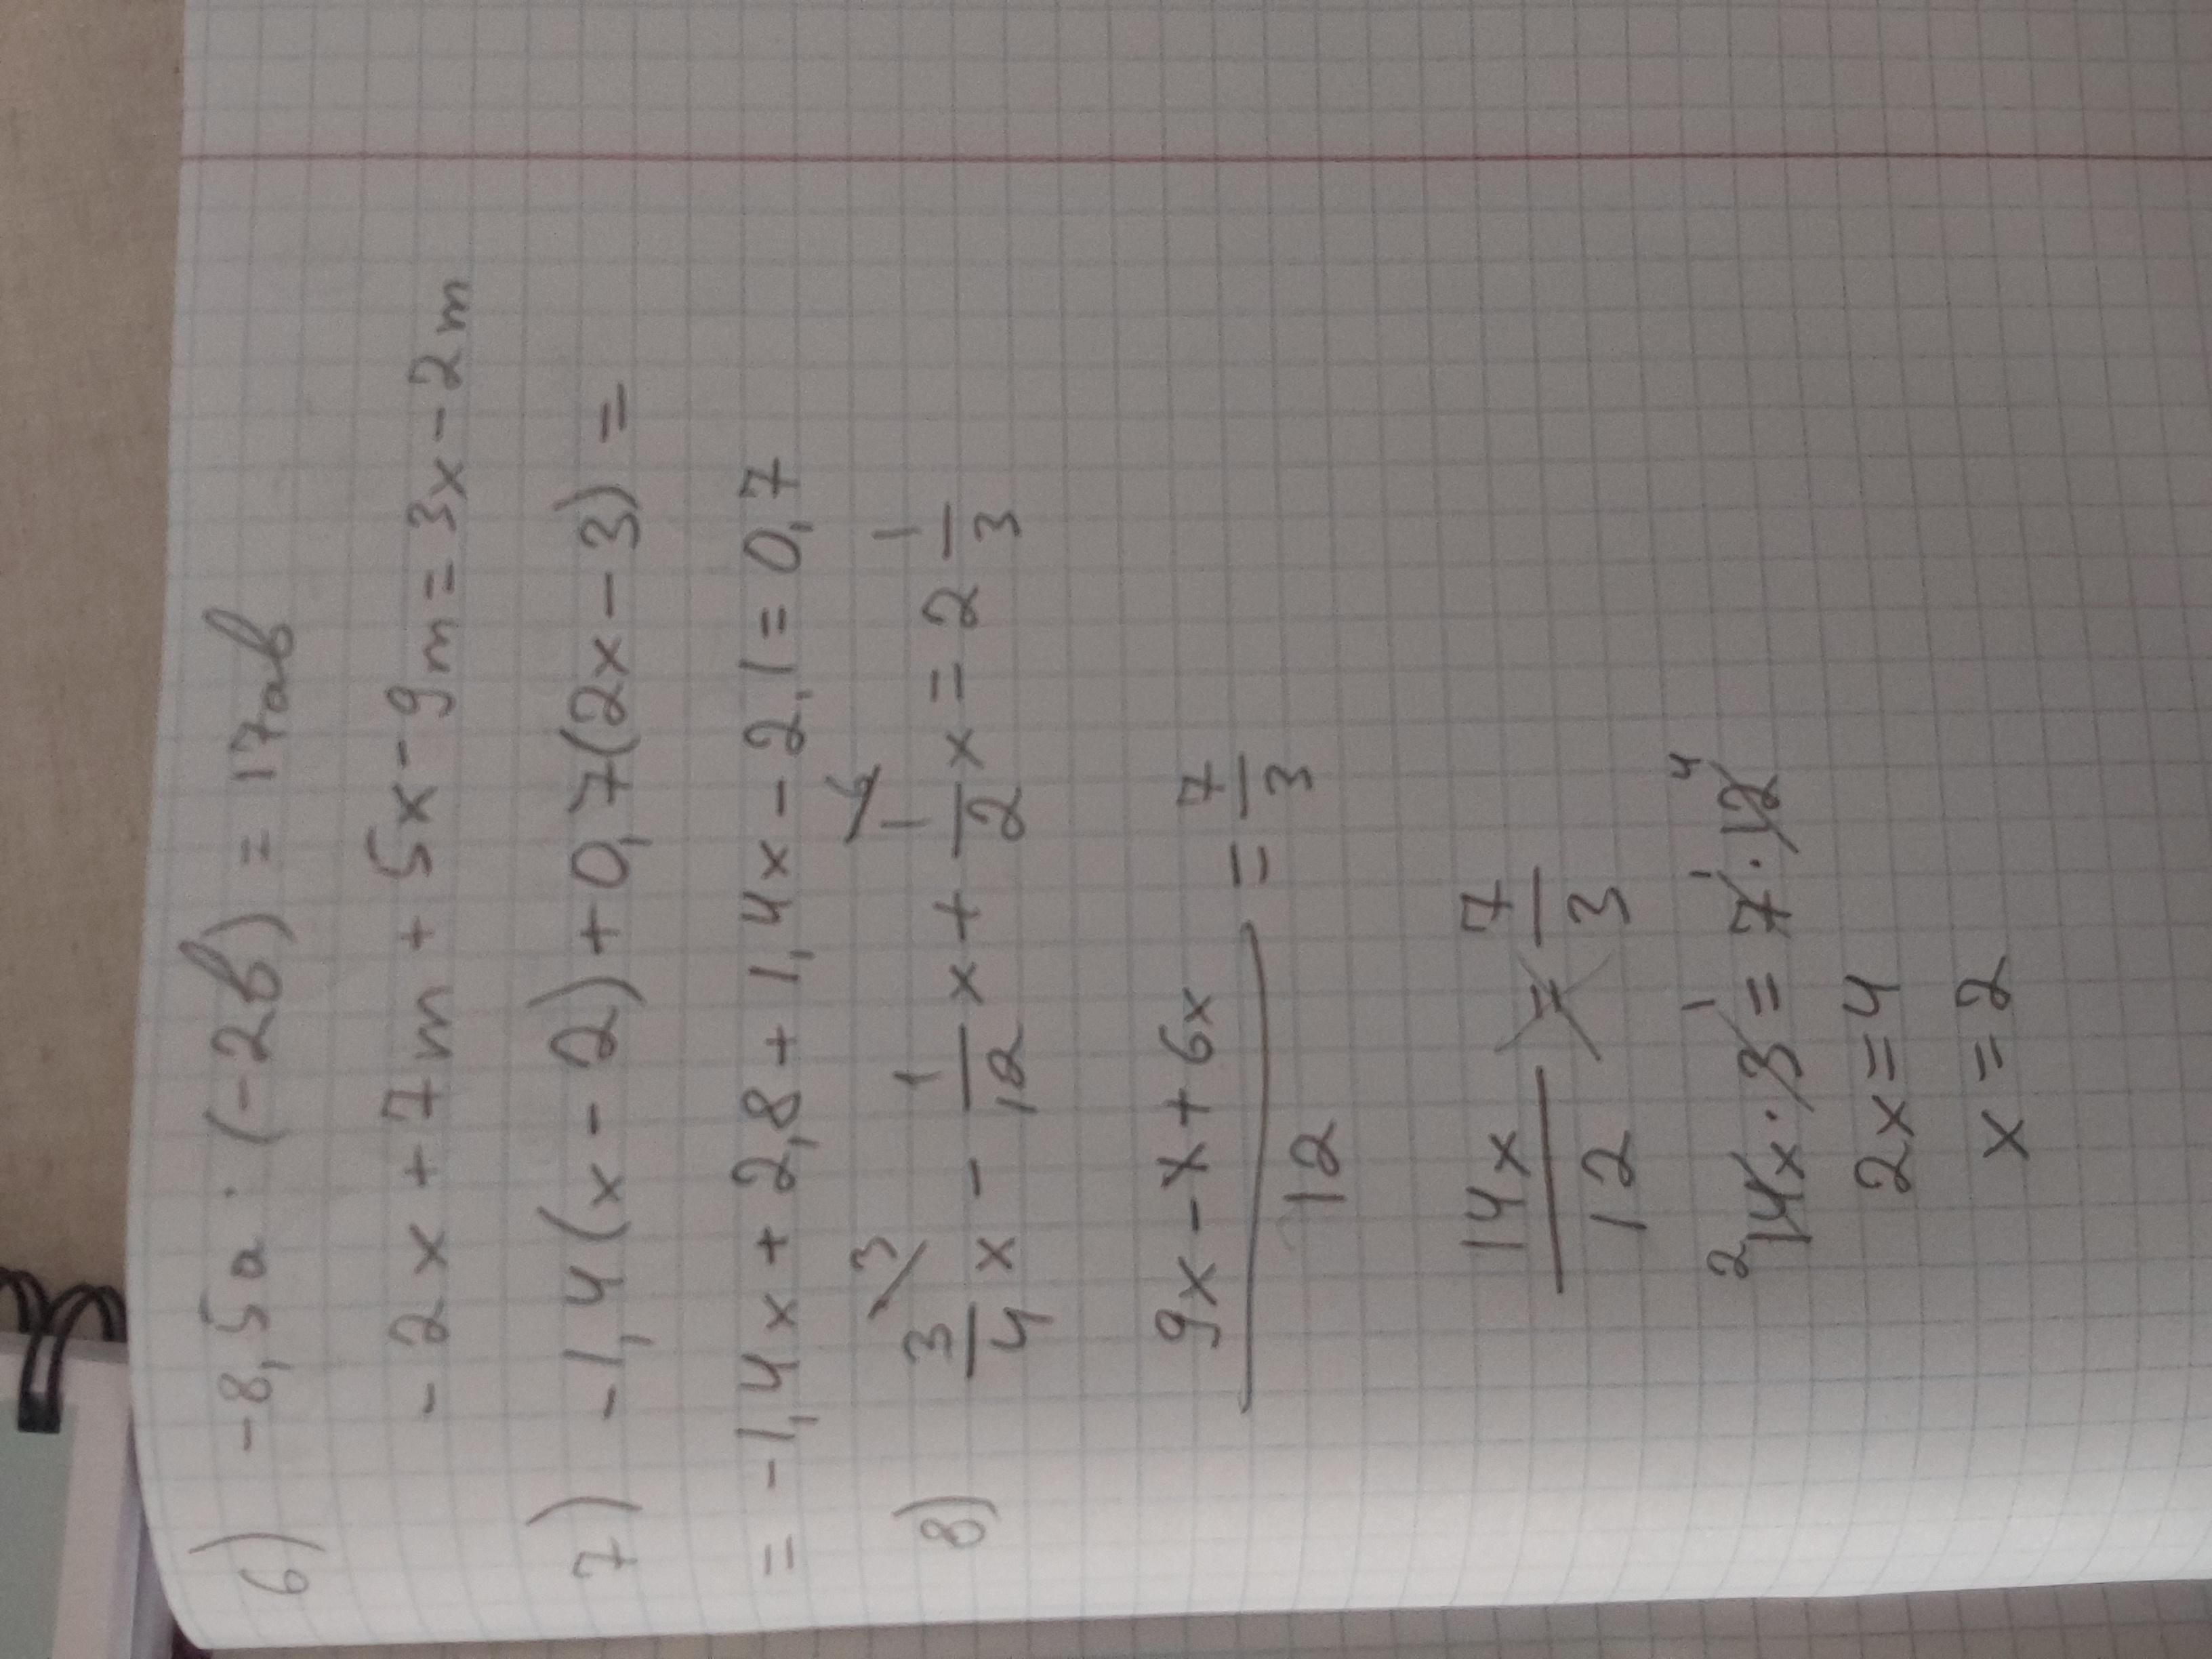 6) -8,5a · (-2в) = 17ав
-2x + 7m + 5x - 9m = 3x - 2m
7) -1,4(x - 2) + 0,7(2x - 3) =
= -1,4x + 2,8 + 1,4x - 2,1 = 0,7
8) 3/4 \3 x - 1/12 x + 1/2 \6 x = 2 1/3
(9x - x + 6x)/12 = 7/3
14x/12 = 7/3
2 14x · 3 1 = 7 1 · 12 4
2x = 4
x = 2